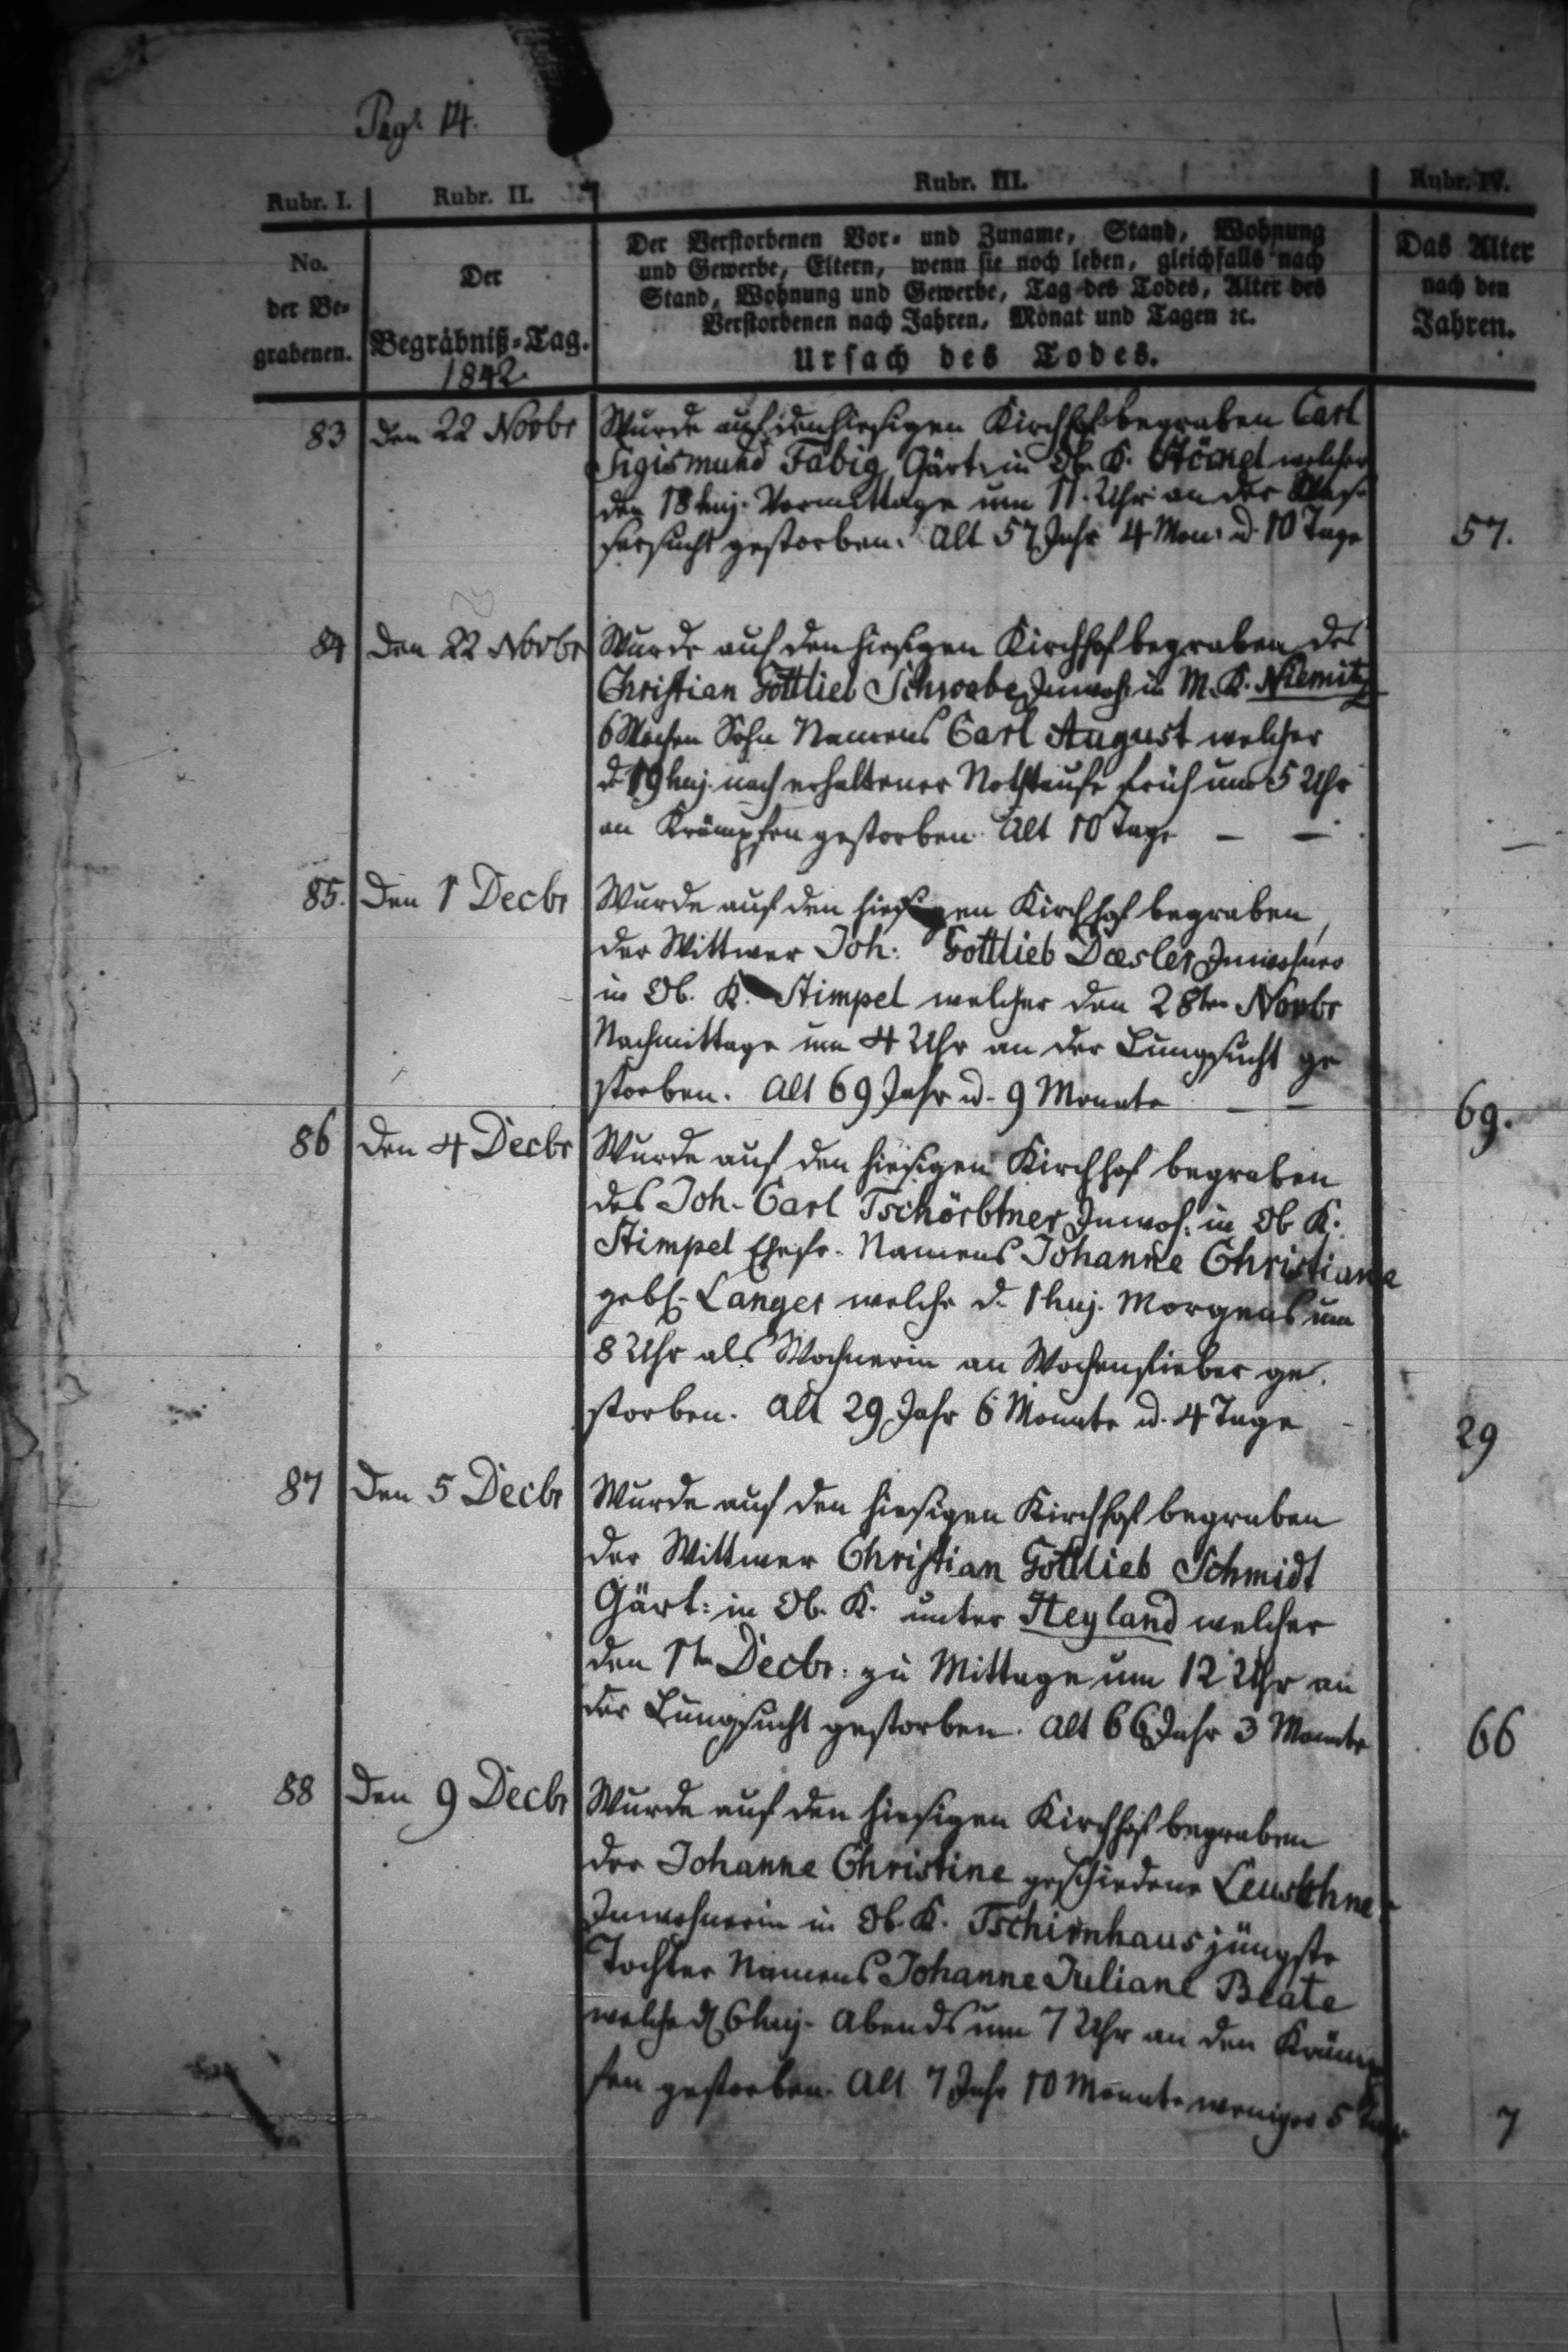 Pag: 14.
Rubr. I. Rubr. II. Rubr. III. Rubr. IV.
No.
der Be-
grabenen.
Der
Begräbniß-Tag.
1842.
Der Verstorbenen Vor- und Zuname, Stand, Wohnung
und Gewerbe, Eltern, wenn sie noch leben, gleichfalls nach
Stand, Wohnung und Gewerbe, Tag des Todes, Alter des
Verstorbenen nach Jahren, Monat und Tagen ꝛc.
Ursach des Todes.
Das Alter
nach den
Jahren.
83 den 22 Novbr Wurde auf den hiesigen Kirchhof begraben Carl
Sigismund Fabig Gärt: in Ob. K. welcher
den 18 huj. Vormittage um 11. Uhr an der Was-
sersucht gestorben. Alt 57 Jahr 4 Mon: u. 10 Tage 57.
84 den 22 Novbr Wurde auf den hiesigen Kirchhof begraben des
Christian Gottlieb Schwabe Inwoh: in M. K. Niemitz
6 Wochen Sohn Namens Carl August welcher
d. 19 huj. nach erhaltener Nothtaufe früh um 5 Uhr
an Krämpfen gestorben. Alt 10 Tage — — —
85. den 1 Decbr Wurde auf den hiesigen Kirchhof begraben,
der Wittwer Joh: Gottlieb Dæsler Inwohner
in Ob. K. Stimpel welcher den 28ten Novbr
Nachmittage um 4 Uhr an der Lungsucht ge
storben. Alt 69 Jahr u. 9 Monate — — 69.
86 den 4 Decbr Wurde auf den hiesigen Kirchhof begraben
des Joh. Carl Tschörbtner Inwoh: in Ob K.
Stimpel Ehefr. Namens Johanne Christiane
geb. Langer welche d. 1 huj. Morgens um
8 Uhr als Wöchnerin an Wochenfieber ge-
storben. Alt 29 Jahr 6 Monate u. 4 Tage - 29
87 den 5 Decbr Wurde auf den hiesigen Kirchhof begraben
der Wittwer Christian Gottlieb Schmidt
Gärt: in Ob. K. unter Heyland welcher
den 1ten Decbr: zu Mittage um 12 Uhr an
der Lungsucht gestorben. Alt 66 Jahr 3 Monate 66
88 den 9 Decbr Wurde auf den hiesigen Kirchhof begraben
der Johanne Christine geschiedene
Inwohnerin in Ob. K. Tschirnhaus jüngste
Tochter Namens Johanne Juliane Beate
welche d 6 huj. Abends um 7 Uhr an den Kräm
fen gestorben. Alt 7 Jahr 10 Monate weniger 5 Tage 7